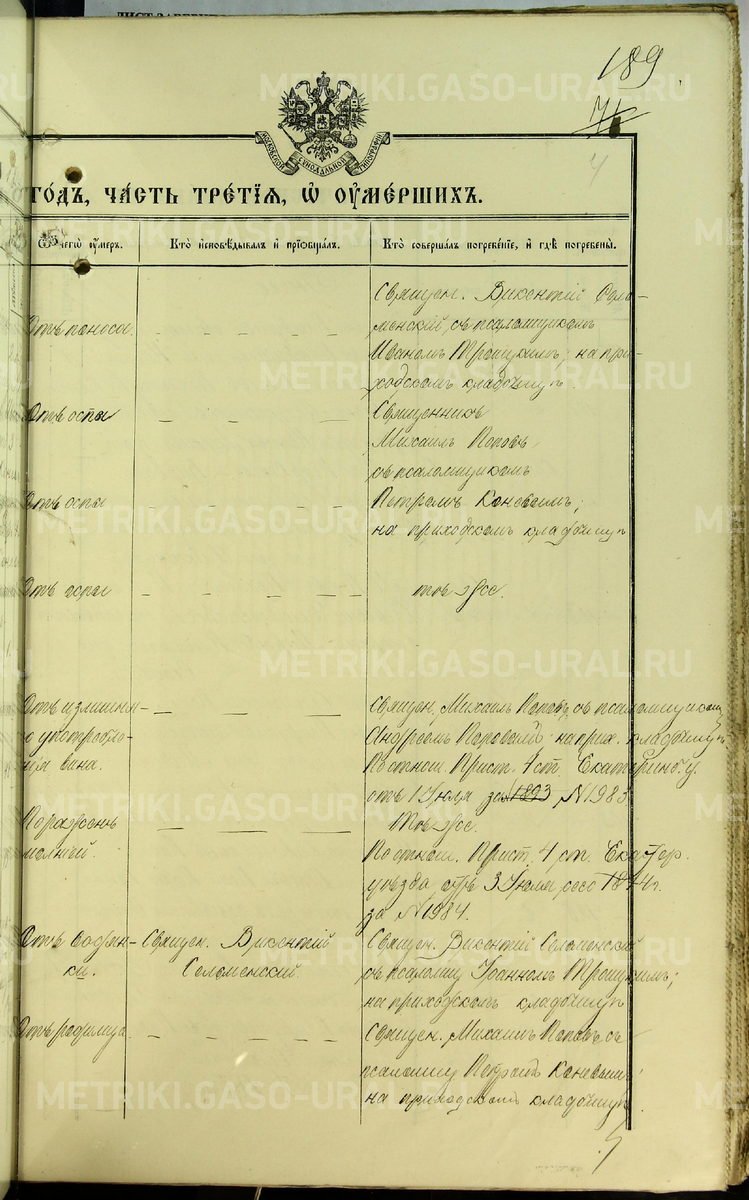 189
МОСКОВСКОЙ СѴНОДАЛЬНОЙ ТИПОГРАФІИ
годъ, часть третїѧ, ѡ оумершихъ.
Ѿ чегѡ оумеръ.
Кто исповѣдывалъ и прїобщалъ.
Кто совершалъ погребенїе, и гдѣ погребены.
Отъ поноса.
Священ. Викентій Соло-
менскій, съ псаломщикомъ
Иваномъ Трошкимъ; на при-
ходскомъ кладбищѣ.
Отъ оспы
Священникъ
Михаилъ Поповъ
съ псаломщикомъ
Отъ оспы
Петромъ Каневымъ;
на приходскомъ кладбищѣ
Отъ оспы
тоже.
Отъ излишня-
го употребле-
нія вина.
Священ. Михаилъ Поповъ, съ псаломщиком
Андреемъ Поповымъ на прих. кладбищѣ
По отнош. Прист. 1 ст. Екатеринб. у.
отъ 1 Іюля за 1893 № 1983
Пораженъ
молніей.
Тоже.
По отнош. Прист. 1 ст. Екатер.
уѣзда, отъ 3 Іюля, сего 1894 г.
за № 1984.
Отъ водян-
ки.
Священ. Викентій
Соломенскій.
Священ. Викентій Соломенскій
съ псаломщ. Іоанномъ Трошкимъ;
на приходскомъ кладбищѣ
Отъ родимца
Священ. Михаилъ Поповъ съ
псаломщ. Петромъ Каневымъ;
на приходскомъ кладбищѣ.
METRIKI.GASO-URAL.RU